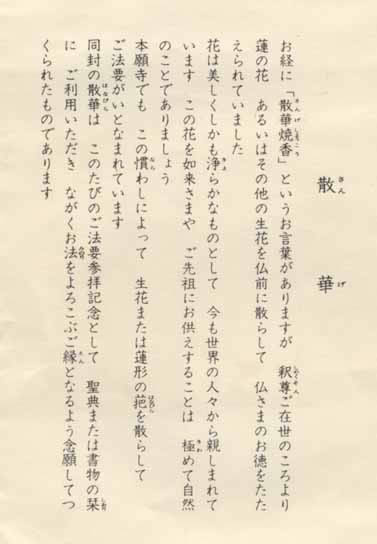 散華
お経に「散華焼香」というお言葉がありますが　釈尊ご在世のころより
蓮の花　あるいはその他の生花を仏前に散らして　仏さまのお徳をたた
えられていました
花は美しくしかも浄らかなものとして　今も世界の人々から親しまれて
います　この花を如来さまや　ご先祖にお供えすることは　極めて自然
のことでありましょう
本願寺でも　この慣わしによって　生花または蓮形の葩を散らして
ご法要がいとなまれています
同封の散華は　このたびのご法要参拝記念として　聖典または書物の栞
に　ご利用いただき　ながくお法をよろこぶご縁となるよう念願してつ
くられたものであります